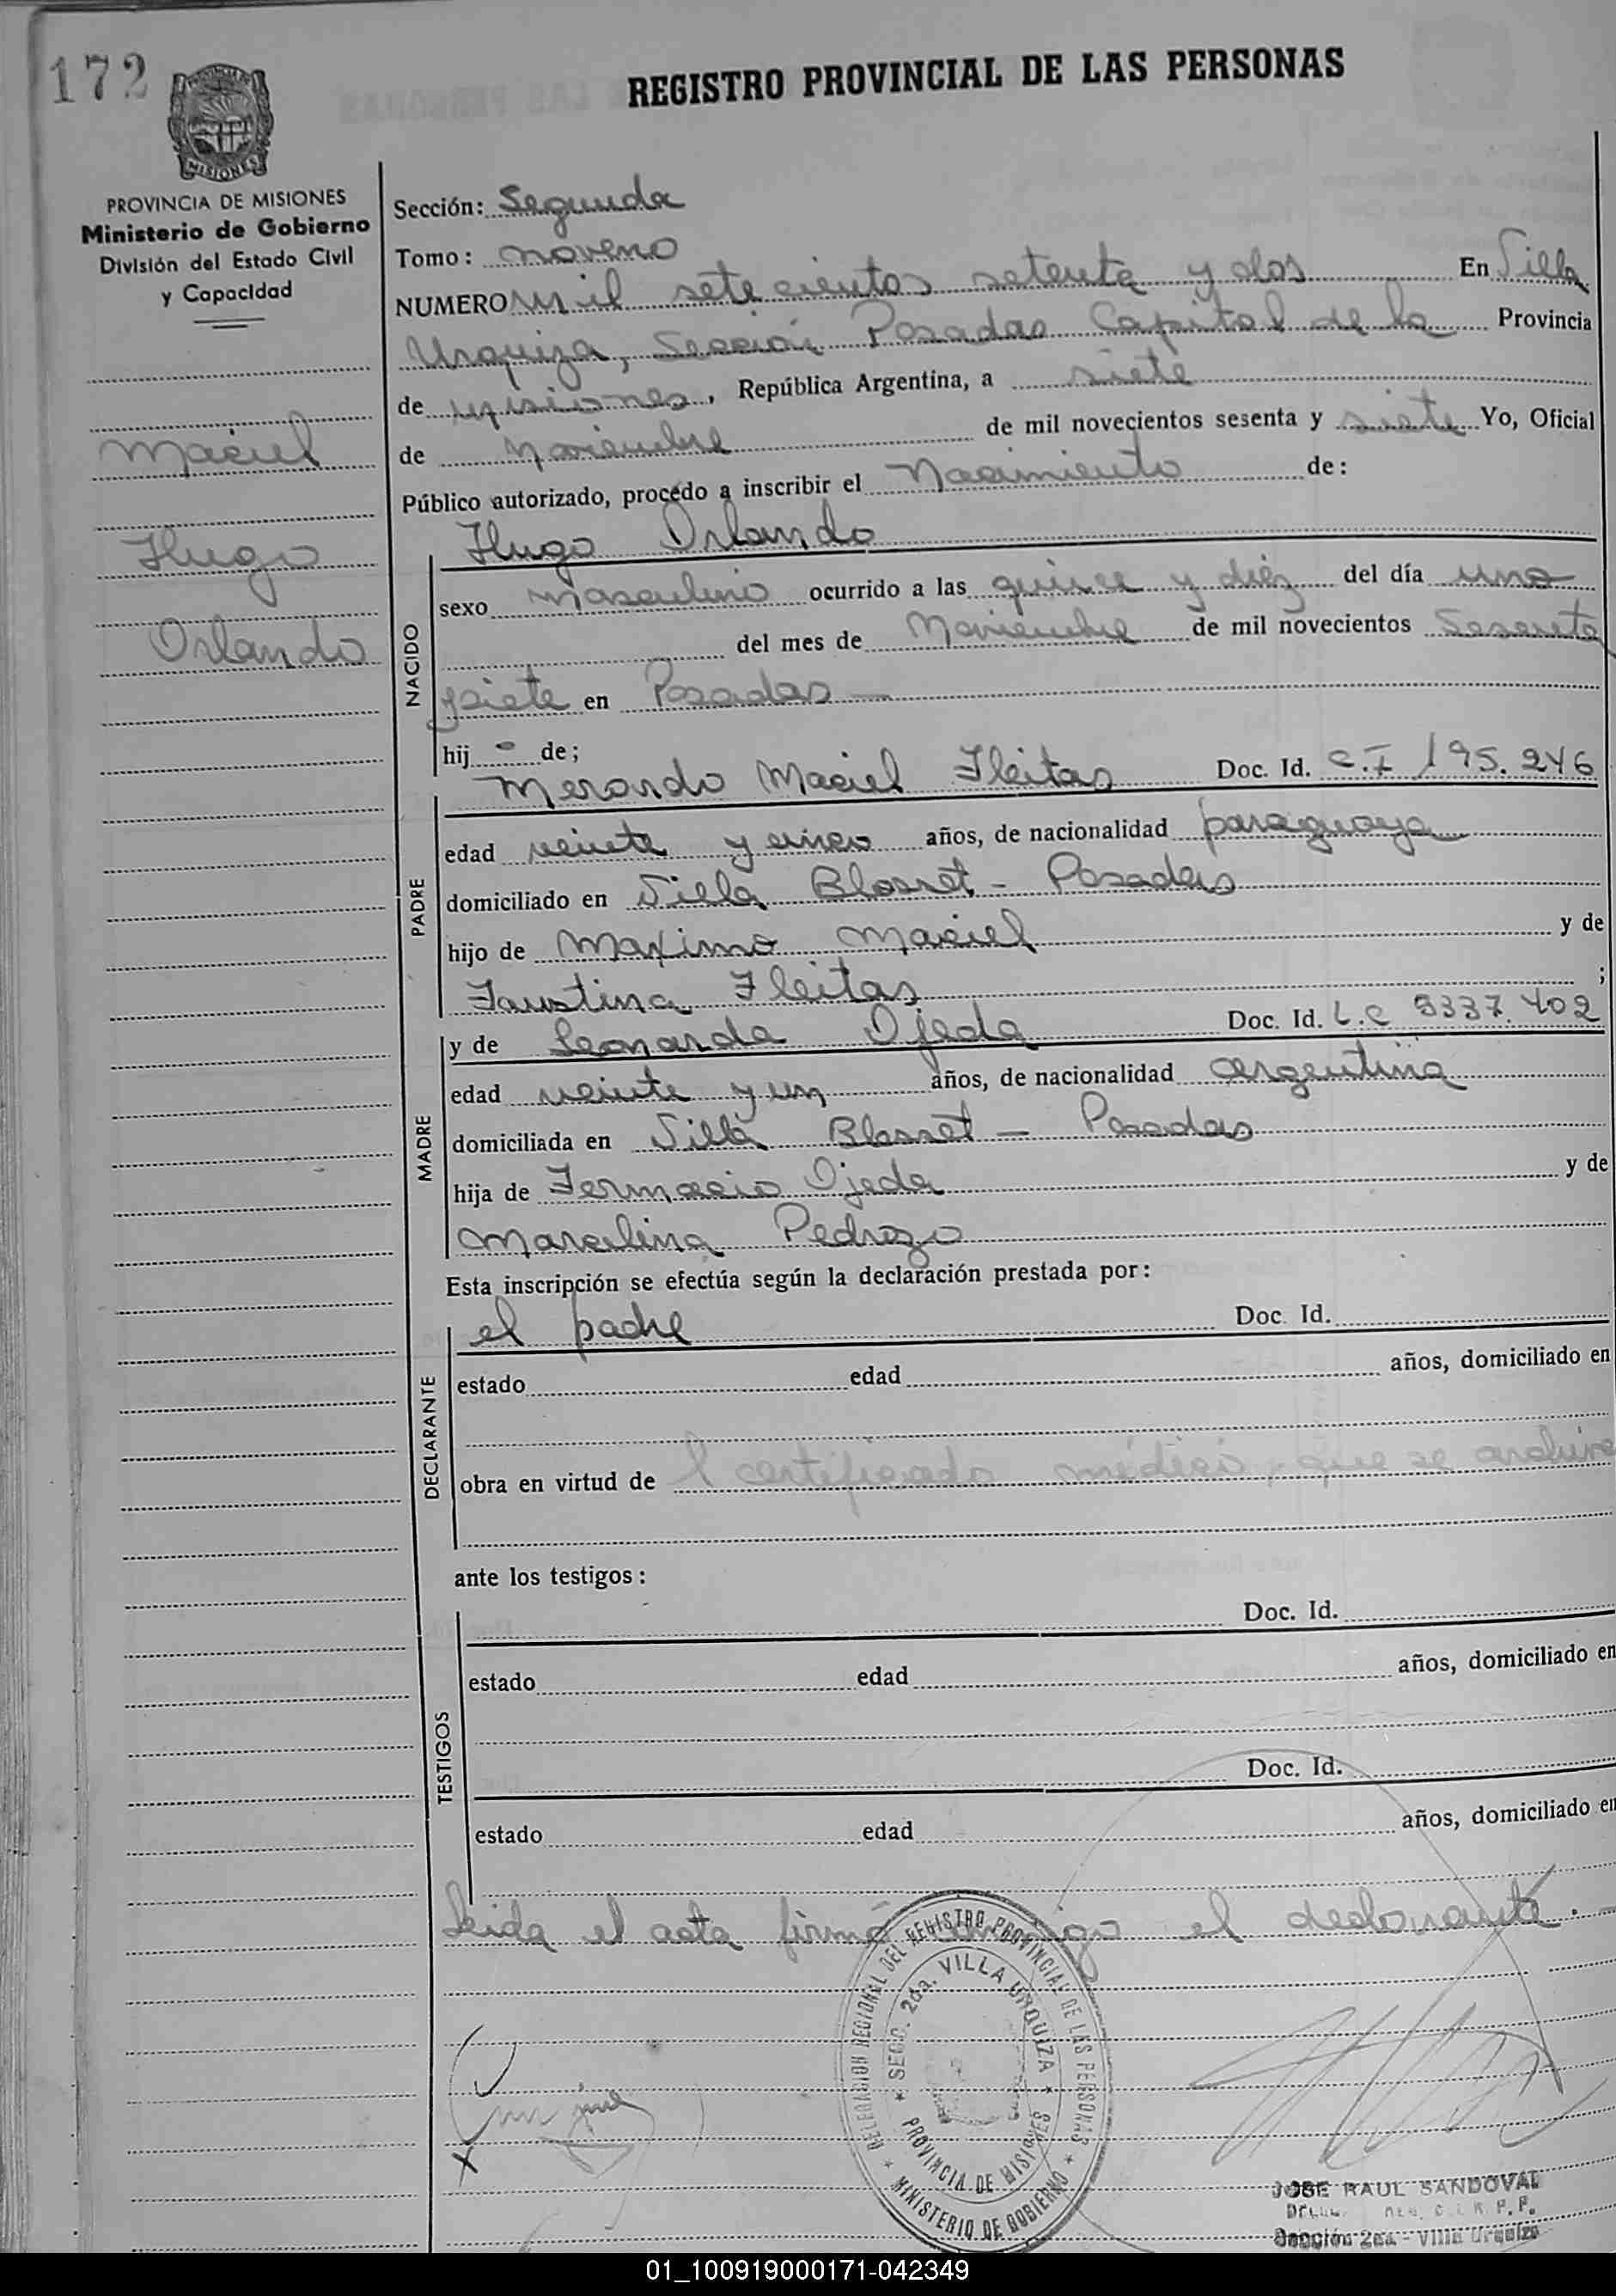 172
MISIONES
REGISTRO PROVINCIAL DE LAS PERSONAS
PROVINCIA DE MISIONES
Ministerio de Gobierno
División del Estado Civil
y Capacidad
Maciel
Hugo
Orlando
Sección: Segunda
Tomo: noveno
NUMERO mil setecientos setenta y dos En Villa
Urquiza, Sección Posadas Capital de la Provincia
de Misiones, República Argentina, a siete
de Noviembre de mil novecientos sesenta y siete Yo, Oficial
Público autorizado, procedo a inscribir el Nacimiento de:
NACIDO
Hugo Orlando
sexo Masculino ocurrido a las quince y diéz del día uno
del mes de Noviembre de mil novecientos Sesenta
y siete en Posadas —
hij o de;
PADRE
Merardo Maciel Fleitas Doc. Id. C.I 195.246
edad veinte y cinco años, de nacionalidad paraguaya
domiciliado en Villa Blosset - Posadas
hijo de Maximo Maciel y de
Faustina Fleitas ;
MADRE
y de Leonarda Ojeda Doc. Id. L.C 5337.402
edad veinte y un años, de nacionalidad argentina
domiciliada en Villa Blosset — Posadas
hija de Fermacio Ojeda y de
Marcelina Pedrozo
Esta inscripción se efectúa según la declaración prestada por:
DECLARANTE
el padre Doc. Id.
estado edad años, domiciliado en
obra en virtud de l certificado médico, que se archiva
ante los testigos:
TESTIGOS
Doc. Id.
estado edad años, domiciliado en
Doc. Id.
estado edad años, domiciliado en
Leida el acta firmó conmigo el declarante.
DELEGACION REGIONAL DEL REGISTRO PROVINCIAL DE LAS PERSONAS
* SECC. 2da. VILLA URQUIZA *
PROVINCIA DE MISIONES
* MINISTERIO DE GOBIERNO *
X
JOSE RAUL SANDOVAL
Sección 2da. - Villa Urquiza
01_100919000171-042349